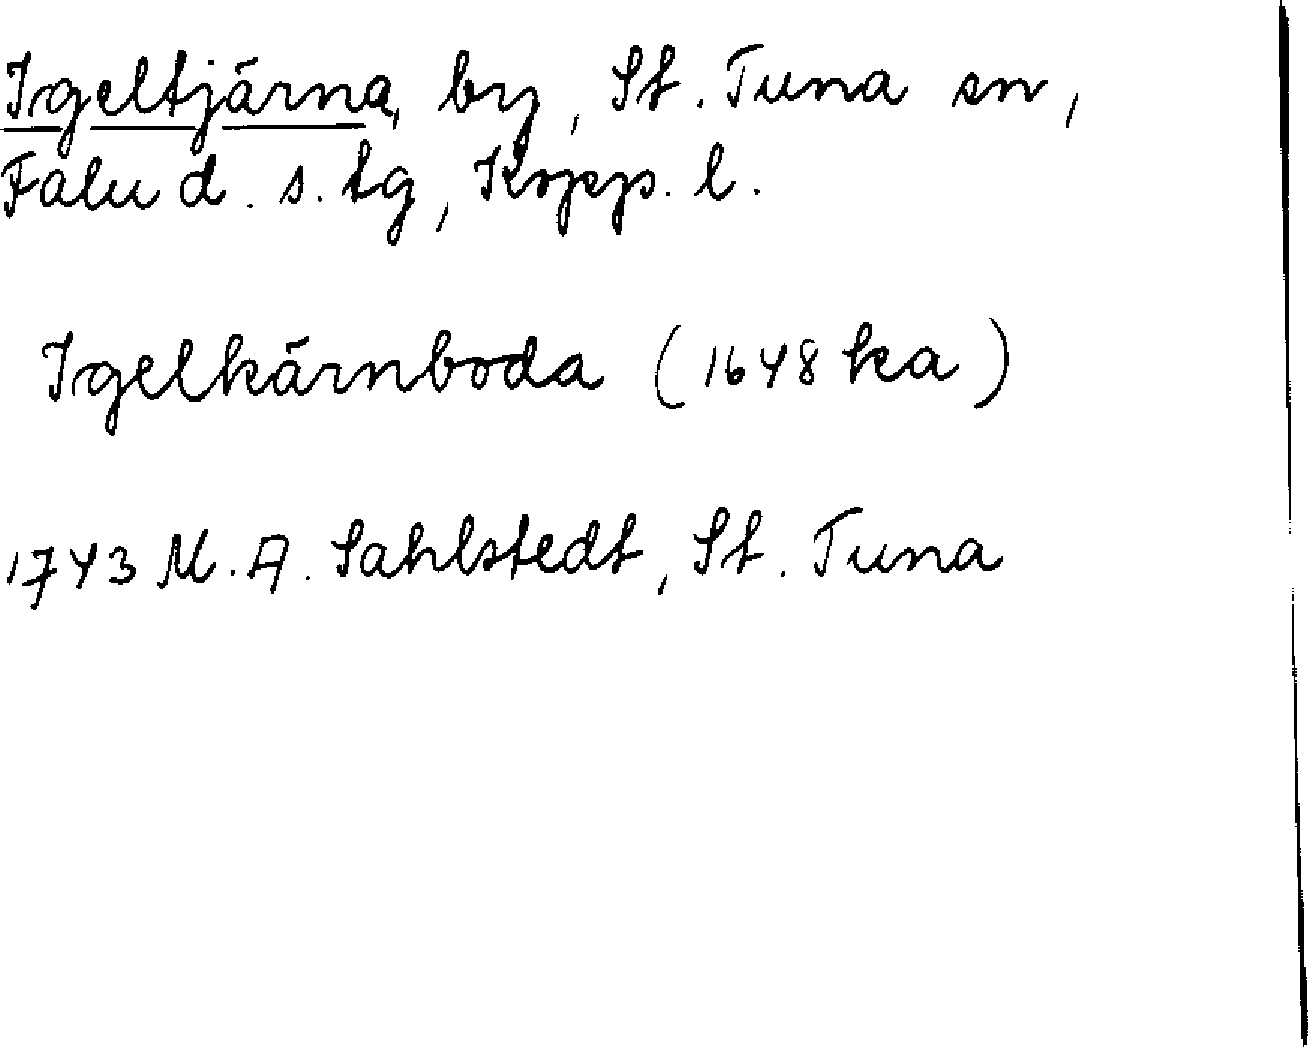 Igeltjärna, by, St. Tuna sn,
Falu d. s. tg, Kopp. l.
Igelkärnboda (1648 ka)
1743 M. A. Sahlstedt, St. Tuna